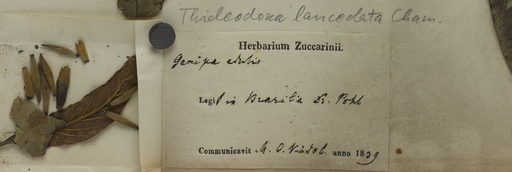 Thieleodoxa lanceolata Cham.
Herbarium Zuccarinii.
Genipa edulis
Legit in Brasilia Dr. Pohl
Communicavit M. O. Vindob. anno 1839